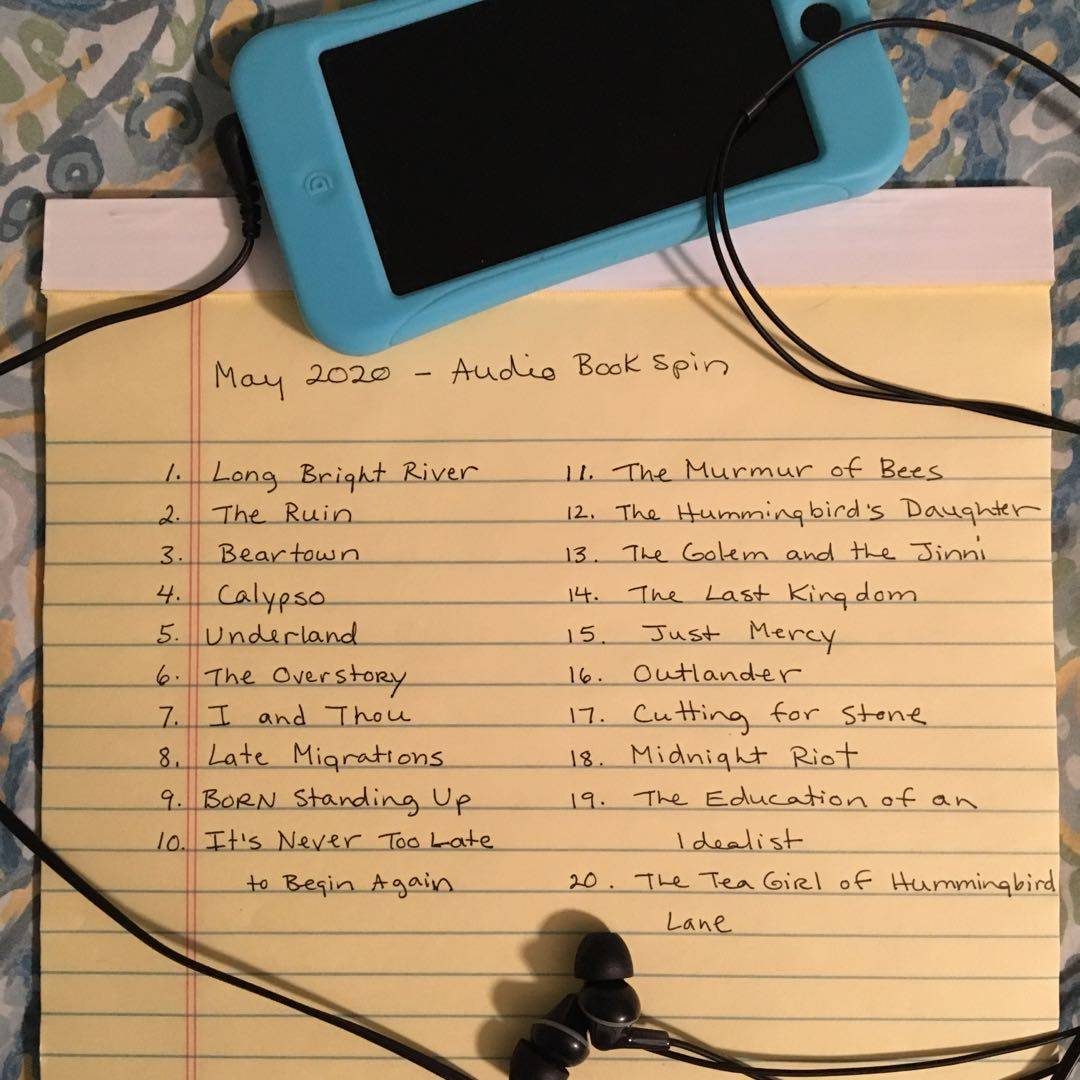 May 2020 - Audio Book Spin
1. Long Bright River
2. The Ruin
3. Beartown
4. Calypso
5. Underland
6. The Overstory
7. I and Thou
8. Late Migrations
9. BORN Standing Up
10. It's Never Too Late
to Begin Again
11. The Murmur of Bees
12. The Hummingbird's Daughter
13. The Golem and the Jinni
14. The Last Kingdom
15. Just Mercy
16. Outlander
17. Cutting for Stone
18. Midnight Riot
19. The Education of an
Idealist
20. The Tea Girl of Hummingbird
Lane